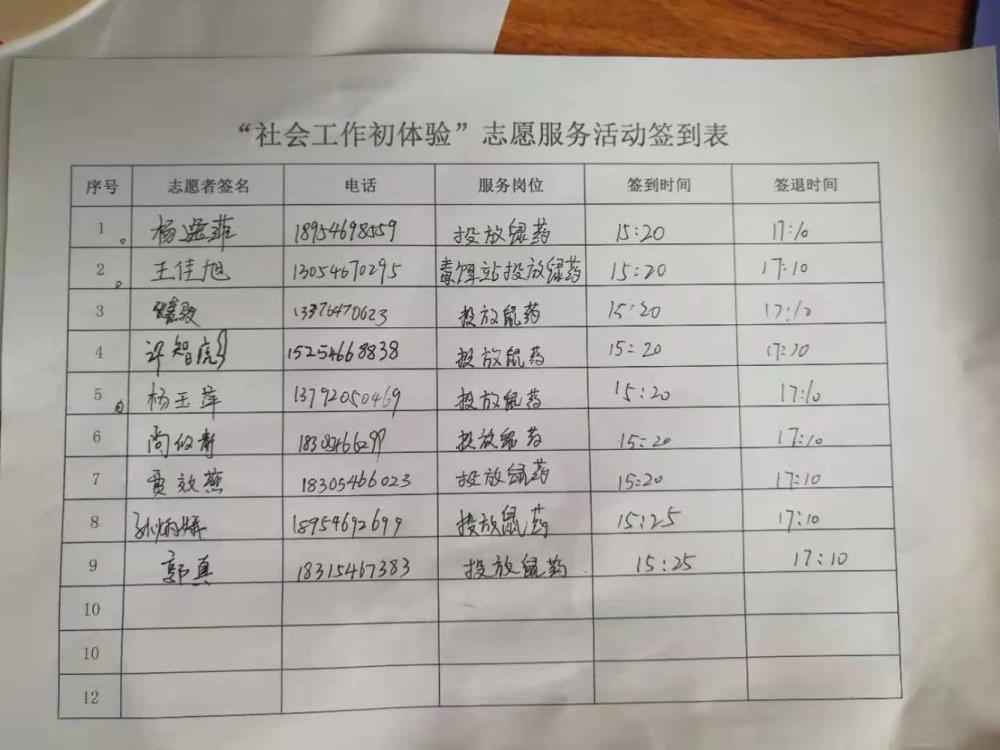 “社会工作初体验”志愿服务活动签到表
序号 志愿者签名 电话 服务岗位 签到时间 签退时间
1 杨逸菲 18954698559 投放鼠药 15:20 17:10
2 王佳旭 13054670295 毒饵站投放鼠药 15:20 17:10
3 13376470623 投放鼠药 15:20 17:10
4 许智虎 15254668838 投放鼠药 15:20 17:20
5 杨玉萍 13792050469 投放鼠药 15:20 17:10
6 尚 投放鼠药 15:20 17:10
7 贾效燕 18305466023 投放鼠药 15:20 17:10
8 孙炳 18954692699 投放鼠药 15:25 17:10
9 郭真 18315467383 投放鼠药 15:25 17:10
10
10
12